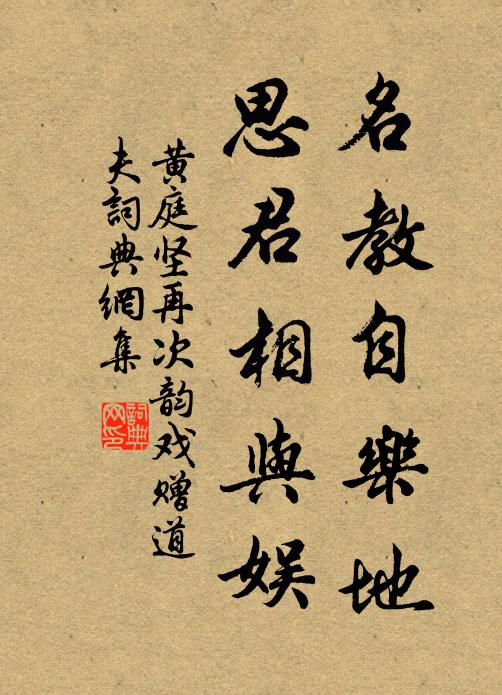 名教自樂地
思君相與娱
黄庭坚再次韵戏赠道
夫詞典網集
詞典
网印